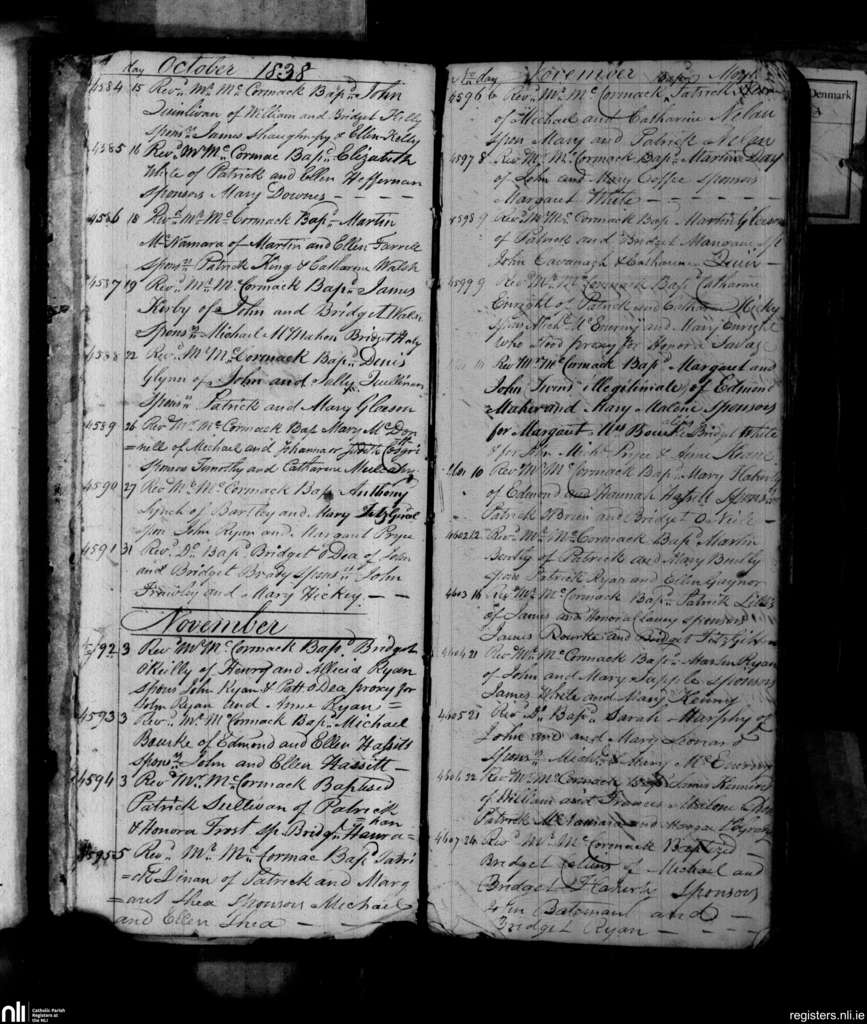 day October 1838
4584 15 Revd. Mr. McCormack Bapd. John
Quinlivan of William and Bridget Kelly
Spons. James Shaughnessy & Ellen Kelly
4585 16 Revd. Mr. McCormac Bapd. Elizabeth
White of Patrick and Ellen Heffernan
Sponsors Mary Downes - - - -
4586 18 Revd. Mr. McCormack Bapd. Martin
McNamara of Martin and Ellen Farrell
Spons. Patrick King & Catharine Walsh
4587 19 Revd. Mr. McCormack Bapd. James
Kirby of John and Bridget
Spons. Michael McMahon Bridget Healy
4588 22 Revd. Mr. McCormack Bapd. Denis
Glynn of John and Sally Quillinan
Spons. Patrick and Mary Gleeson
4589 26 Revd. Mr. McCormack Bap. Mary McDon
=nell of Michael and Johanna
Sponsors Timothy and Catharine Mulcahy
4590 27 Revd. Mr. McCormack Bapd. Anthony
Lynch of Bartley and Mary
spon. John Ryan and Margaret Pryce
4591 31 Revd. Do. Bapd. Bridget O'Dea of John
and Bridget Brady Spons. John
Frawley and Mary Hickey - -
November
92 3 Revd. Mr. McCormack Bapd. Bridget
O'Reilly of Henry and Allicia Ryan
Spons. John Ryan & Patt O'Dea proxy for
John Ryan and Anne Ryan =
4593 3 Revd. Mr. McCormack Bapd. Michael
Bourke of Edmond and Ellen Hassett
Spons. John and Ellen Hassett -
4594 3 Revd. Mr. McCormack Baptised
Patrick Sullivan of Patrick
& Honora Frost sp. Bridgt. Hanra=
=han
4595 5 Revd. Mr. McCormac Bapd. Patri
=ck Dinan of Patrick and Marg
=aret Shea Sponsors Michael
and Ellen Shea -
No. day November Bapd.
4596 6 Revd. Mr. McCormack Patrick
of Michael and Catharine Nelan
Spon Mary and Patrick Nelan
4597 8 Revd. Mr. McCormack Bapd. Martin Day
of John and Mary Coffee sponsors
Margaret White - - - -
4598 9 Revd. Mr. McCormack Bapd. Martin Gleeson
of Patrick and Bridget Mangan sp.
John Cavanagh & Catharine Quin -
4599 9 Revd. Mr. McCormack Bapd. Catharine
Enright of Patrick and Hickey
Spons. Michl. McEniry and Mary Enright
who stood proxy for Honora Savage
Revd. Mr. McCormack Bapd. Margaret and
John Twins illegitimate of Edmond
Maher and Mary Malone Sponsors
for Margaret Mrs Bourke Bridget White
& for John Michl. Pryce & Anne Keane
4601 10 Revd. Mr. McCormack Bapd. Mary
of Edmond and Hannah Sponsors
Patrick O'Brien and Bridget O'Neill
4602 12 Revd. Mr. McCormack Bapd. Martin
Bently of Patrick and Mary Bently
spon Patrick Ryan and Ellen Gaynor
4603 14 Revd. Mr. McCormack Bapd. Patrick Lillis
of James and Honora Clancy sponsors
James Bourke and Bridget FitzGibbon
4604 21 Revd. Mr. McCormack Bapd. Martin Ryan
of John and Mary Supple Sponsors
James White and Mary Kenny
4605 21 Revd. Do. Bapd. Sarah Murphy of
John and Mary Leonard
Spons. Michl. & Mary McEnery
4606 22 Revd. Mr. McCormack James
of William and Frances Malone
Patrick McNamara and
4607 24 Revd. Mr. McCormack Baptized -
Bridget of Michael and
Bridget Flaherty Sponsors
John Bateman and -
Bridget Ryan - - - -
Denmark
A
nli
Catholic Parish
Registers at
the NLI
registers.nli.ie